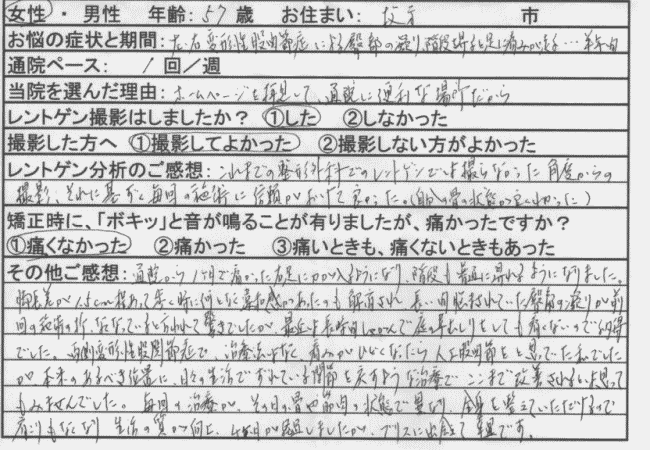 女性 ・ 男性 年齢: 57 歳 お住まい: 市
お悩の症状と期間: 左・右変形性股関節症による臀部の凝り、階段昇る時足に痛みが走る…半年前
通院ペース: 1 回/週
当院を選んだ理由: ホームページを拝見して、通院に便利な場所だから
レントゲン撮影はしましたか? ①した ②しなかった
撮影した方へ ①撮影してよかった ②撮影しない方がよかった
レントゲン分析のご感想: これまでの整形外科でのレントゲンでは撮らなかった角度からの
撮影、それに基づく毎回の施術に信頼がおけて良かった。(自分の骨の状態が良くわかった)
矯正時に、「ボキッ」と音が鳴ることが有りましたが、痛かったですか?
①痛くなかった ②痛かった ③痛いときも、痛くないときもあった
その他ご感想: 通院から1ヶ月で痛かった右足に力が入るようになり、階段も普通に昇れるようになりました。
何となく違和感があったのも解消され、長い間悩まされていた臀部の凝りが前
回の施術の折、なくなっていると言われて驚きでしたが、最近は長時間しゃがんで庭の草むしりをしても痛くないので納得
でした。両側変形性股関節症で、治療法はなく、痛みがひどくなったら人工股関節をと思っていた私でした
が、本来のあるべき位置に、日々の生活でずれている関節を戻すような治療で、ここまで改善されるとは思って
もみませんでした。毎回の治療が、その日の骨や筋肉の状態で異なり、全身を整えていただけるので
肩こりもなくなり 生活の質が向上、4ヶ月が経過しましたが、プリスに出会えて幸運です。